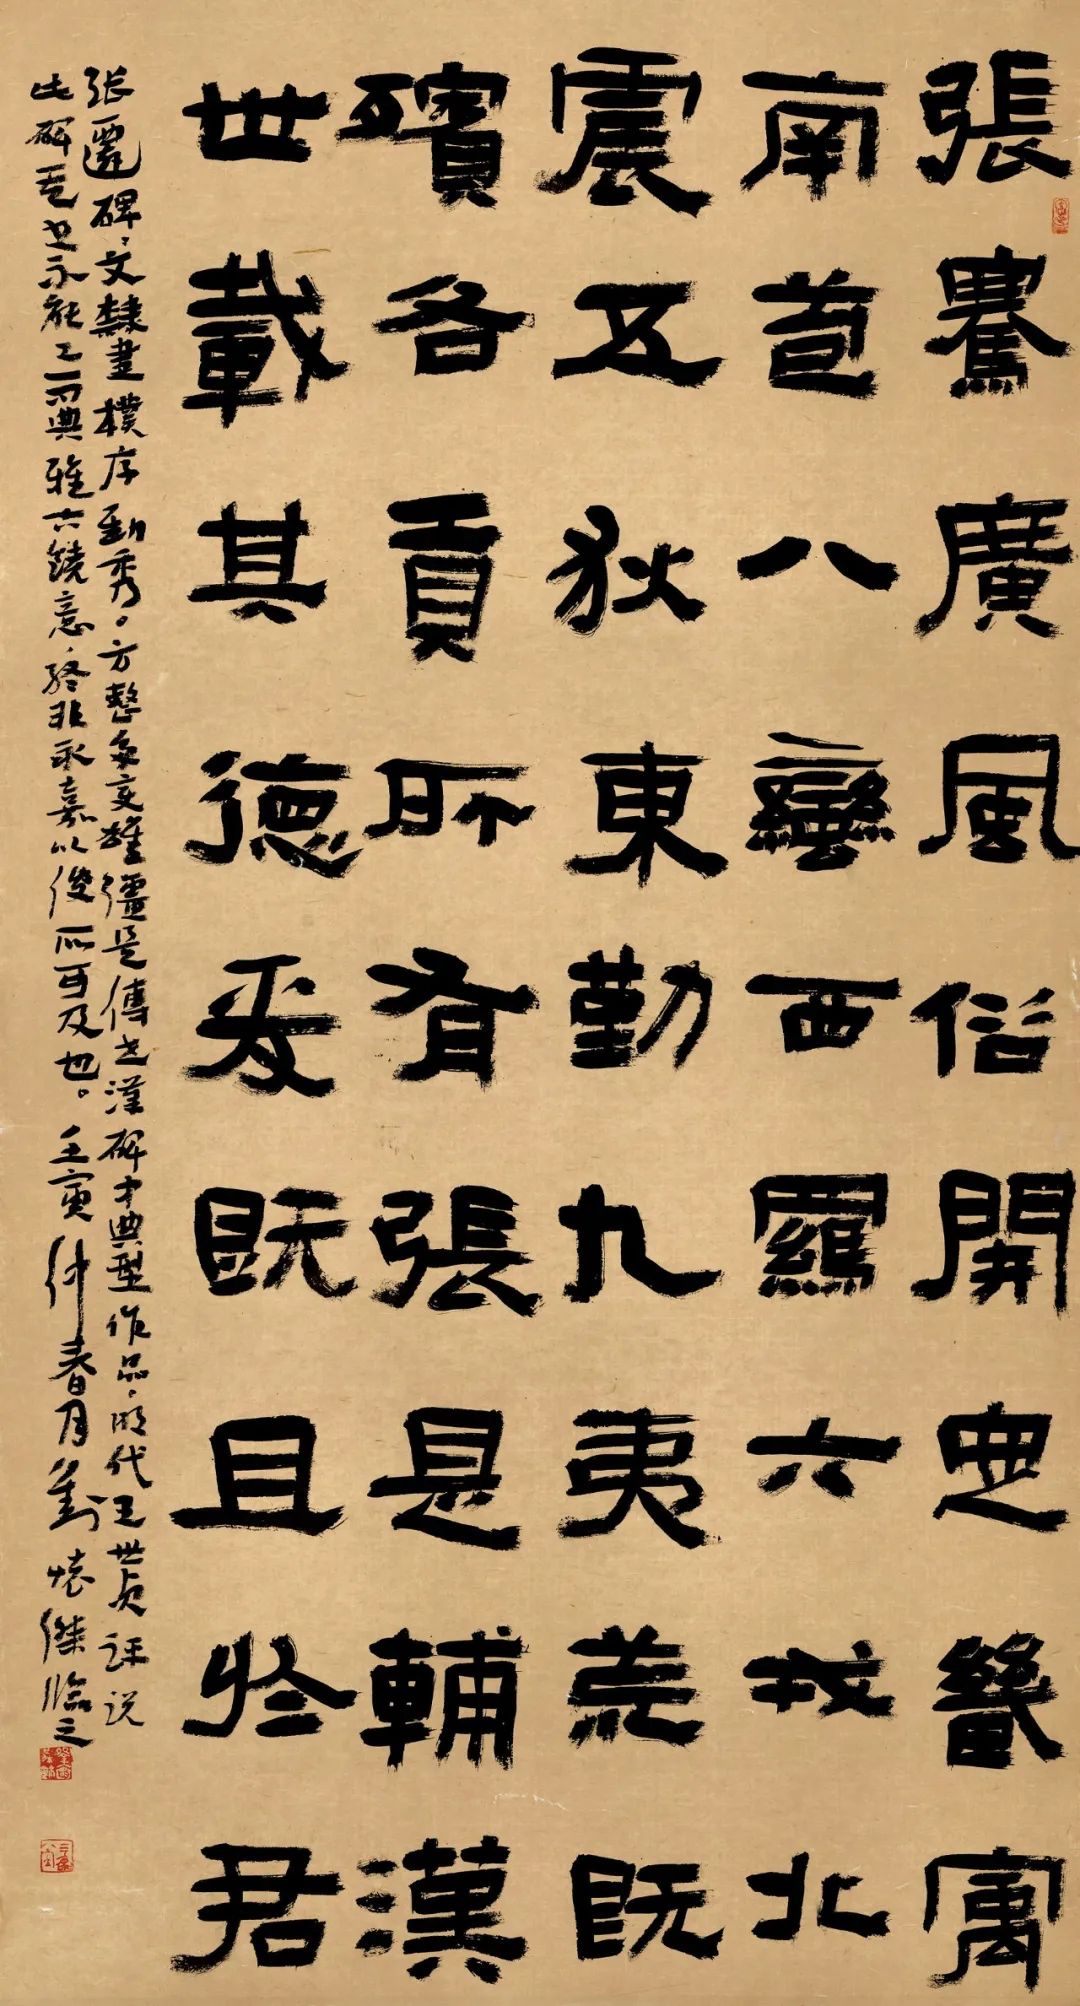 張騫廣風俗開定畿寓
南苞八蠻西羈六戎北
震五狄東勤九夷荒既
殯各貢所有張是輔漢
世載其德爰既且於君
張遷碑，文隸書樸厚勁秀。方整多變雄彊是傳世漢碑中典型作品，明代王世貞評说
此碑書不能工而典雅古饒意，終非永嘉以後所可及也。壬寅仲春月劉懷傑臨之